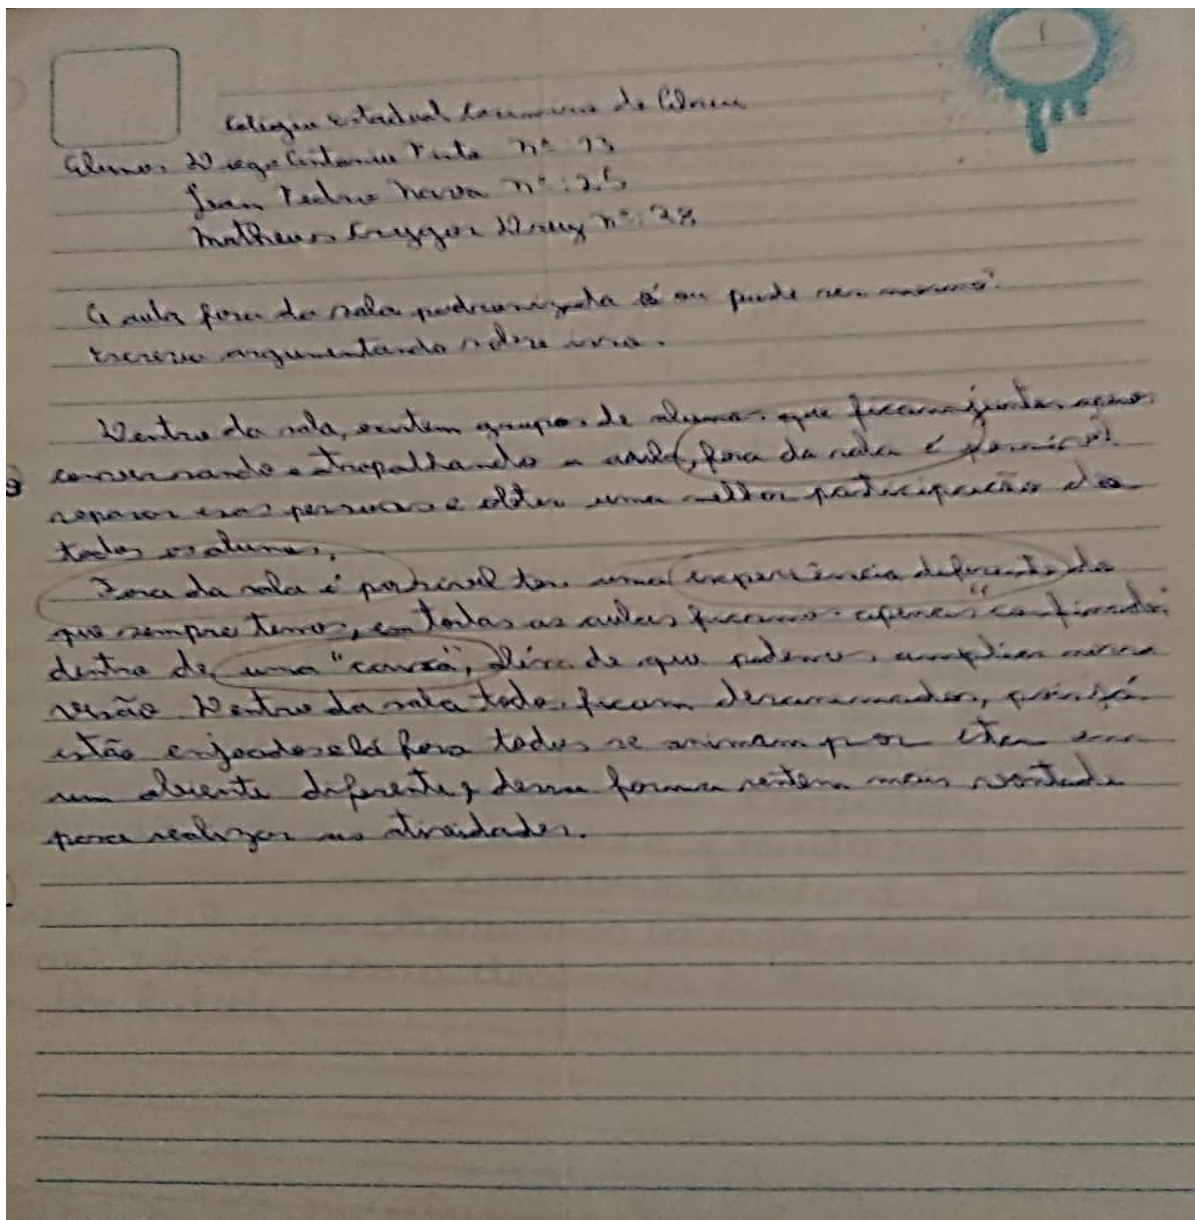 Colégio Estadual Casimiro de Abreu
Alunos Diego Antonio Pinto nº: 13
Jean Pedro nº: 25
Matheus Cryggor nº: 28
A aula fora da sala padronizada é ou pode ser
Escreva argumentando sobre isso.
Dentro da sala, existem grupos de alunos que ficam juntos
conversando e atrapalhando a aula, fora da sala é possível
separar essas pessoas e obter uma melhor participação de
todos os alunos.
Fora da sala é possível ter uma experiência diferente do
que sempre temos, em todas as aulas ficamos apenas "confinados"
dentro de uma "caixa", além de que podemos ampliar nossa
visão Dentro da sala todos ficam desanimados, pois já
estão enjoados e lá fora todos se animam por
um abiente diferente, dessa forma sentem mais vontade
para realizar as atividades.